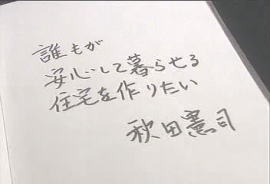 誰もが
安心して暮らせる
住宅を作りたい
秋田憲司